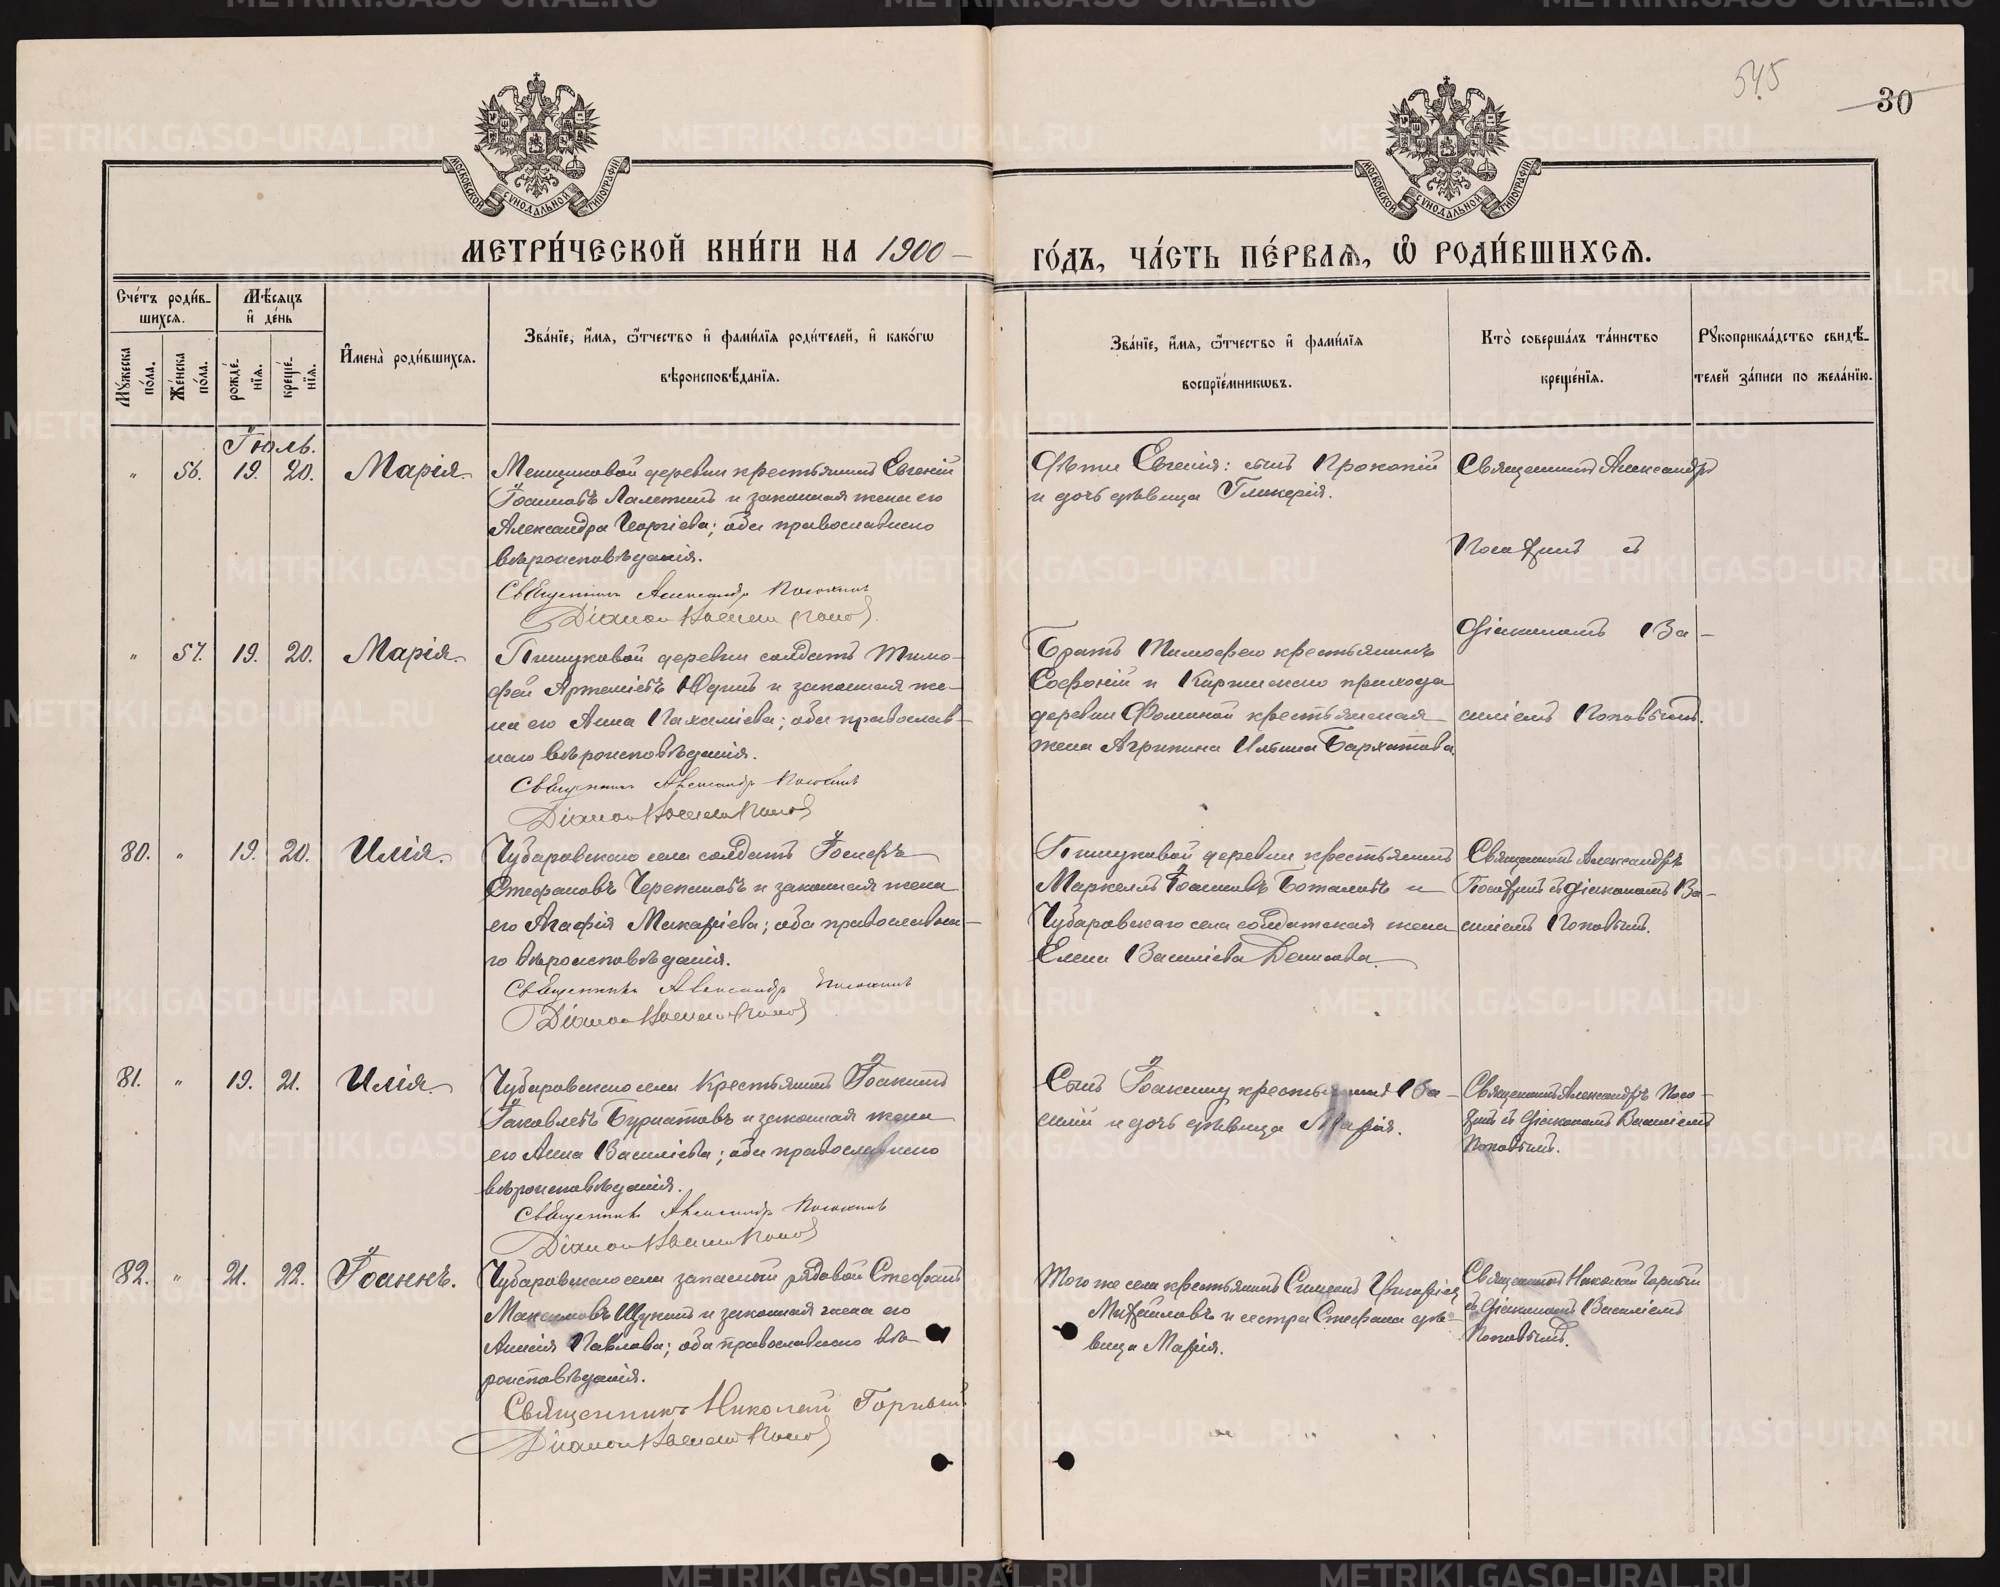 545
30
МОСКОВСКОЙ СУНОДАЛЬНОЙ ТИПОГРАФІИ
МОСКОВСКОЙ СУНОДАЛЬНОЙ ТИПОГРАФІИ
МЕТРИ́ЧЕСКОЙ КНИ́ГИ НА 1900
ГО́ДЪ, ЧА́СТЬ ПЕ́РВАѦ, Ѡ҆ РОДИ́ВШИХСѦ.
Сче́тъ роди́в-
шихсѧ.
Мѣ́сѧцъ
и҆ де́нь
Мꙋ́жеска по́ла.
Же́нска по́ла.
рожде́-
нїѧ.
креще́-
нїѧ.
И҆мена̀ роди́вшихсѧ.
Зва́нїе, и҆́мѧ, ѻ҆́тчество и҆ фами́лїѧ роди́телей, и҆ како́гѡ
вѣроисповѣ́данїѧ.
Зва́нїе, и҆́мѧ, ѻ҆́тчество и҆ фами́лїѧ
воспрїе́мникѡвъ.
Кто̀ соверша́лъ та́инство
креще́нїѧ.
Рꙋкоприкла́дство свидѣ́-
телей за́писи по жела́нїю.
Іюль.
" 56. 19. 20. Марія.
Менщиковой деревни крестьянинъ Евгеній
Іоанновъ Лалетинъ и законная жена его
Александра Георгіева; оба православнаго
вѣроисповѣданія.
Священникъ Александръ
Діаконъ Василій Поповъ
Дѣти Евгенія: сынъ Прокопій
и дочь дѣвица Гликерія.
Священникъ Александръ
съ
Діакономъ Ва-
силіемъ Поповымъ.
" 57. 19. 20. Марія.
Пищуковой деревни солдатъ Тимо-
фей Артеміевъ Юдинъ и законная же-
на его Анна Пахоміева; оба православ-
наго вѣроисповѣданія.
Священникъ Александръ
Діаконъ Василій Поповъ
Братъ Тимофея крестьянинъ
Софоній и Киргинскаго прихода
деревни Фоминой крестьянская
жена Агрипина Ильина Бархатова.
80. " 19. 20. Илія.
Чубаровскаго села солдатъ Іосифъ
Стефановъ Черепановъ и законная жена
его Агафія Макаріева; оба православна-
го вѣроисповѣданія.
Священникъ Александръ
Діаконъ Василій Поповъ
Пищуковой деревни крестьянинъ
Маркеллъ Іоанновъ и
Чубаровскаго села солдатская жена
Елена Василіева Денисова.
Священникъ Александръ
съ Діакономъ Ва-
силіемъ Поповымъ.
81. " 19. 21. Илія.
Чубаровскаго села Крестьянинъ Іоакимъ
Іаковлевъ и законная жена
его Анна Василіева; оба православнаго
вѣроисповѣданія.
Священникъ Александръ
Діаконъ Василій Поповъ
Сынъ Іоакима крестьянинъ Ва-
силій и дочь дѣвица Марія.
Священникъ Александръ
съ Діакономъ Василіемъ
Поповымъ.
82. " 21. 22. Іоаннъ.
Чубаровскаго села запасный рядовой Стефанъ
Максимовъ Щукинъ и законная жена его
Анисія Павлова; оба православнаго вѣ-
роисповѣданія.
Священникъ Николай Горный
Діаконъ Василій Поповъ
Того же села крестьянинъ Симеонъ
Михайловъ и сестра Стефана дѣ-
вица Марія.
Священникъ Николай Горный
съ Діакономъ Василіемъ
Поповымъ.
METRIKI.GASO-URAL.RU